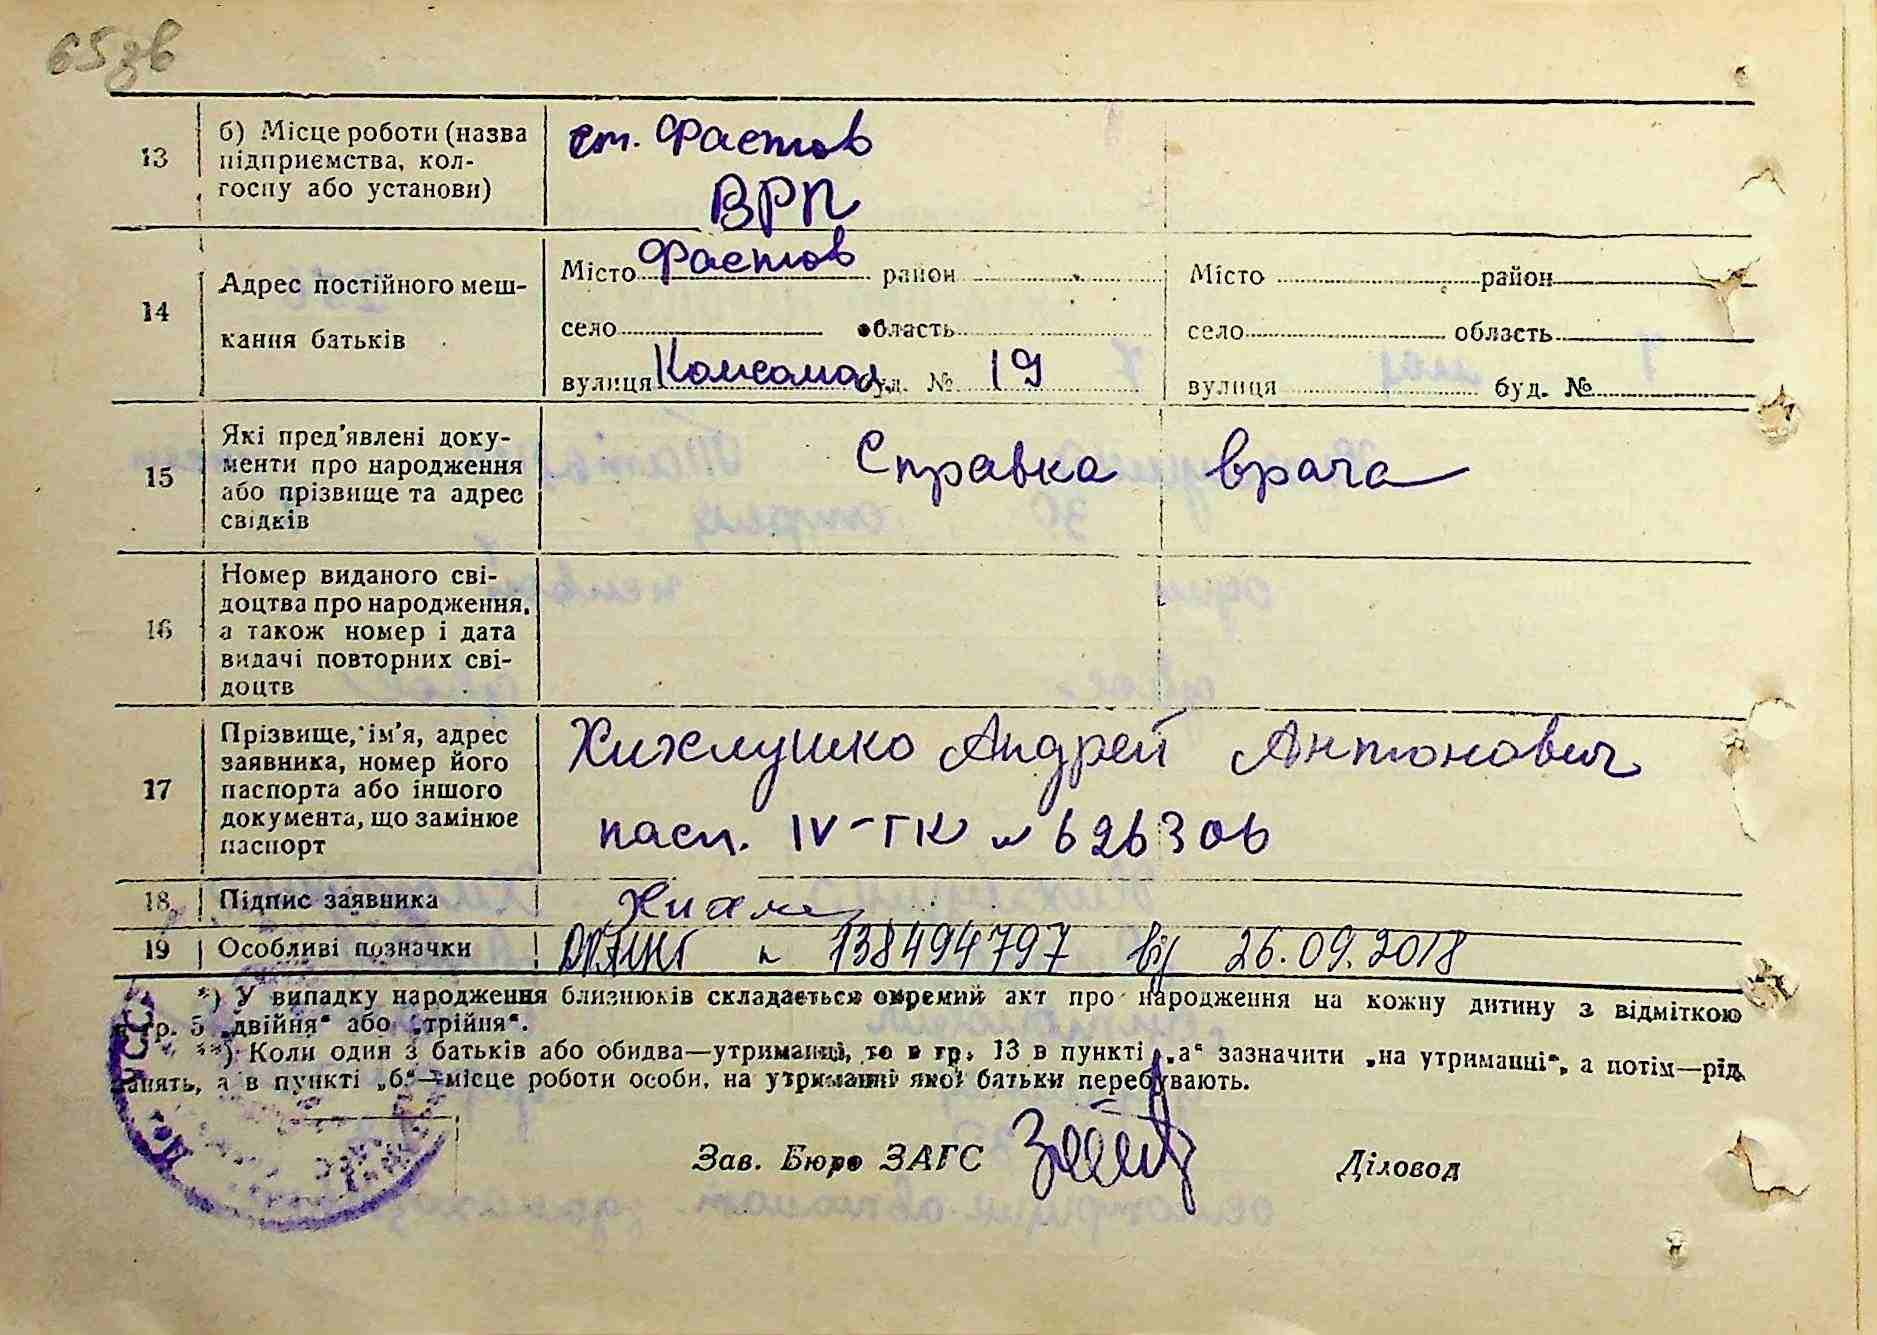 65зв
13
б) Місце роботи (назва
підприємства, кол-
госпу або установи)
ст. Фастов
ВРП
14
Адрес постійного меш-
кання батьків
Місто Фастов район
село область
вулиця Комсомол. буд. № 19
Місто район
село область
вулиця буд. №
15
Які пред'явлені доку-
менти про народження
або прізвище та адрес
свідків
Справка врача
16
Номер виданого сві-
доцтва про народження,
а також номер і дата
видачі повторних сві-
доцтв
17
Прізвище, ім'я, адрес
заявника, номер його
паспорта або іншого
документа, що замінює
паспорт
Хижлушко Андрей Антонович
пасп. IV-ГК № 626306
18
Підпис заявника
19
Особливі позначки
138494797 від 26.09.2018
*) У випадку народження близнюків складається окремий акт про народження на кожну дитину з відміткою
в гр. 5 „двійня“ або „трійня“.
**) Коли один з батьків або обидва—утриманці, то в гр. 13 в пункті „а“ зазначити „на утриманні“, а потім—рід
занять, а в пункті „б“—місце роботи особи, на утриманні якої батьки перебувають.
УССР
Зав. Бюро ЗАГС
Діловод